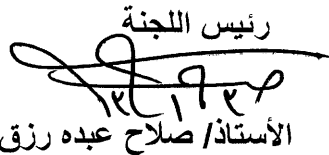 رئيس اللجنة
الأستاذ/ صلاح عبده رزق